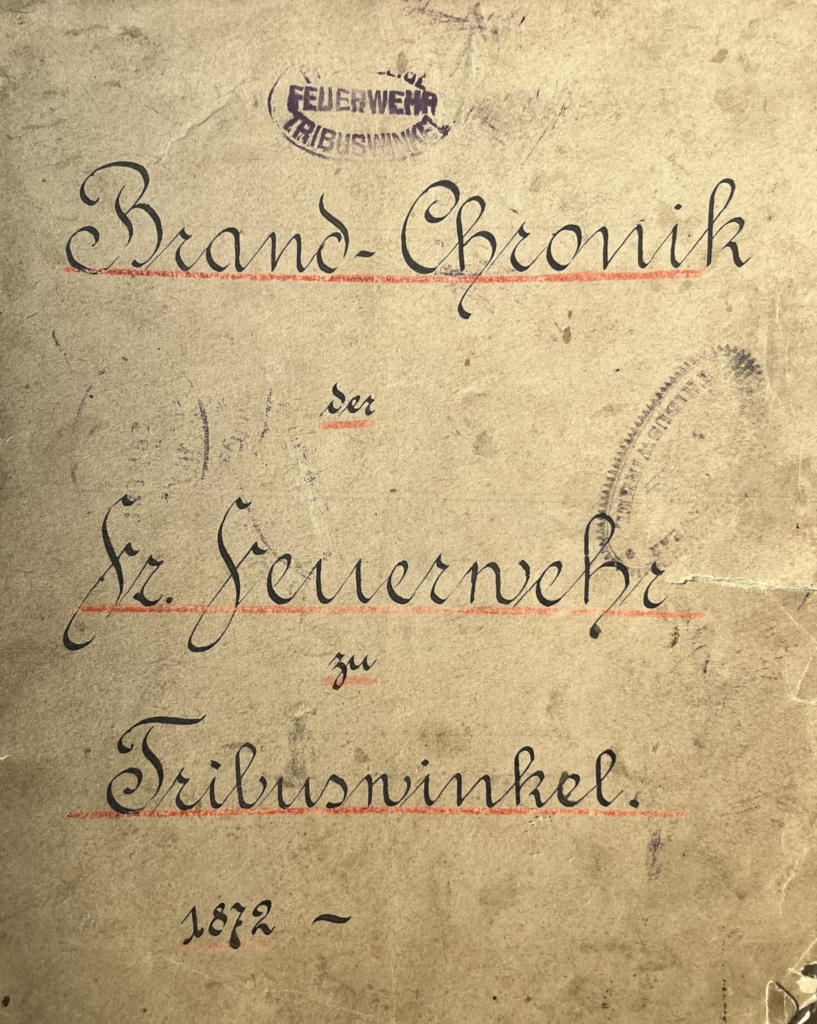 FEUERWEHR
TRIBUSWINKEL
Brand-Chronik
der
Fr. Feuerwehr
zu
Tribuswinkel.
1872 –